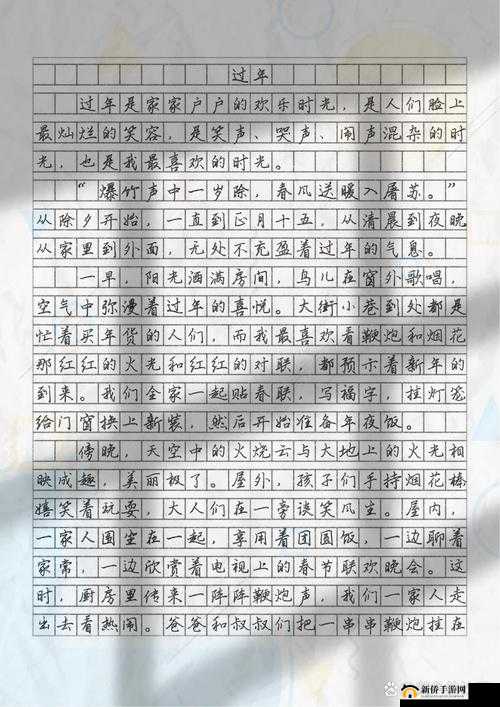 过年
过年是家家户户的欢乐时光，是人们脸上
最灿烂的笑容，是笑声、哭声、闹声混杂的时
光，也是我最喜欢的时光。
“爆竹声中一岁除，春风送暖入屠苏。”
从除夕开始，一直到正月十五，从清晨到夜晚
从家里到外面，无处不充盈着过年的气息。
一早，阳光洒满房间，鸟儿在窗外歌唱，
空气中弥漫着过年的喜悦。大街小巷到处都是
忙着买年货的人们，而我最喜欢看鞭炮和烟花
那红红的火光和红红的对联，都预示着新年的
到来。我们全家一起贴春联，写福字，挂灯笼
给门窗换上新装，然后开始准备年夜饭。
傍晚，天空中的火烧云与大地上的火光相
映成趣，美丽极了。屋外，孩子们手持烟花棒
嬉笑着玩耍，大人们在一旁谈笑风生。屋内，
一家人围坐在一起，享用着团圆饭，一边聊着
家常，一边欣赏着电视上的春节联欢晚会。这
时，厨房里传来一阵阵鞭炮声，我们一家人走
出去看热闹。爸爸和叔叔们把一串串鞭炮挂在
新侨手游网